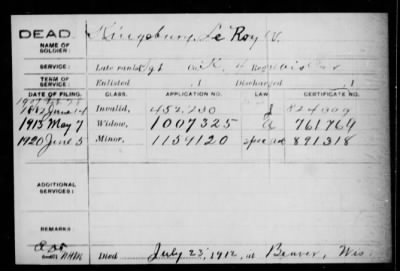 DEAD
NAME OF SOLDIER:
Kingsbury, Le Roy V.
SERVICE:
Late rank Sgt Co. K, 4 Reg't Wis Cav
TERM OF SERVICE:
Enlisted , 1 Discharged , 1
DATE OF FILING. CLASS. APPLICATION NO. LAW CERTIFICATE NO.
June 14 Invalid, 452,230
1913 May 7 Widow, 1007325 761764
1920 June 5 Minor, 1154120 891318
ADDITIONAL SERVICES:
REMARKS:
Died July 23, 1912, at Beaver, Wis